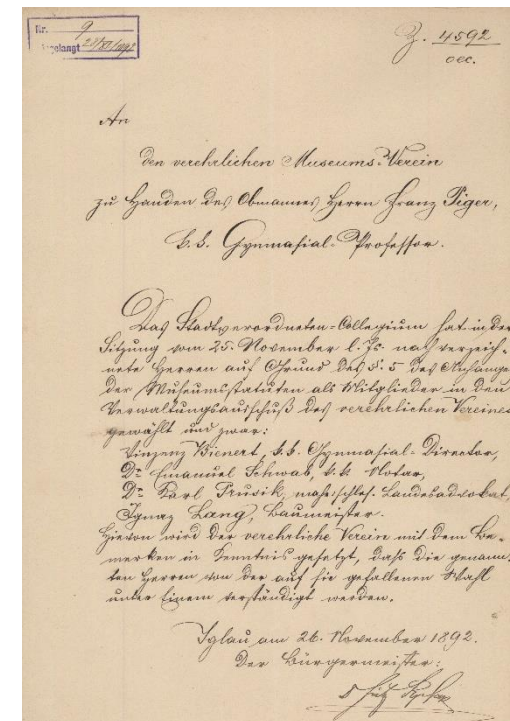 Nr. 9
Z. 4592
oec.
An
den verehrlichen Museums-Verein
zu Handen des Obmannes Herrn Franz Piger,
k. k. Gymnasial-Professor.
Das Stadtverordneten-Collegium hat in der
Sitzung vom 25. November l. Js. nach verzeich-
nete Herren auf Grund des §. 5 des Anhanges
der Museumsstatuten als Mitglieder in den
Verwaltungsausschuß des verehrlichen Vereines
gewählt und zwar:
Vinzenz Bienert, k. k. Gymnasial-Director,
Dr. Emanuel Schwab, k. k. Notar,
Dr. Karl Prusik, mähr. schles. Landesadvokat,
Ignaz Lang, Baumeister.
Hievon wird der verehrliche Verein mit dem Be-
merken in Kenntnis gesetzt, daß die genann-
ten Herren von der auf sie gefallenen Wahl
unter Einem verständigt werden.
Iglau am 26. November 1892.
Der Bürgermeister: